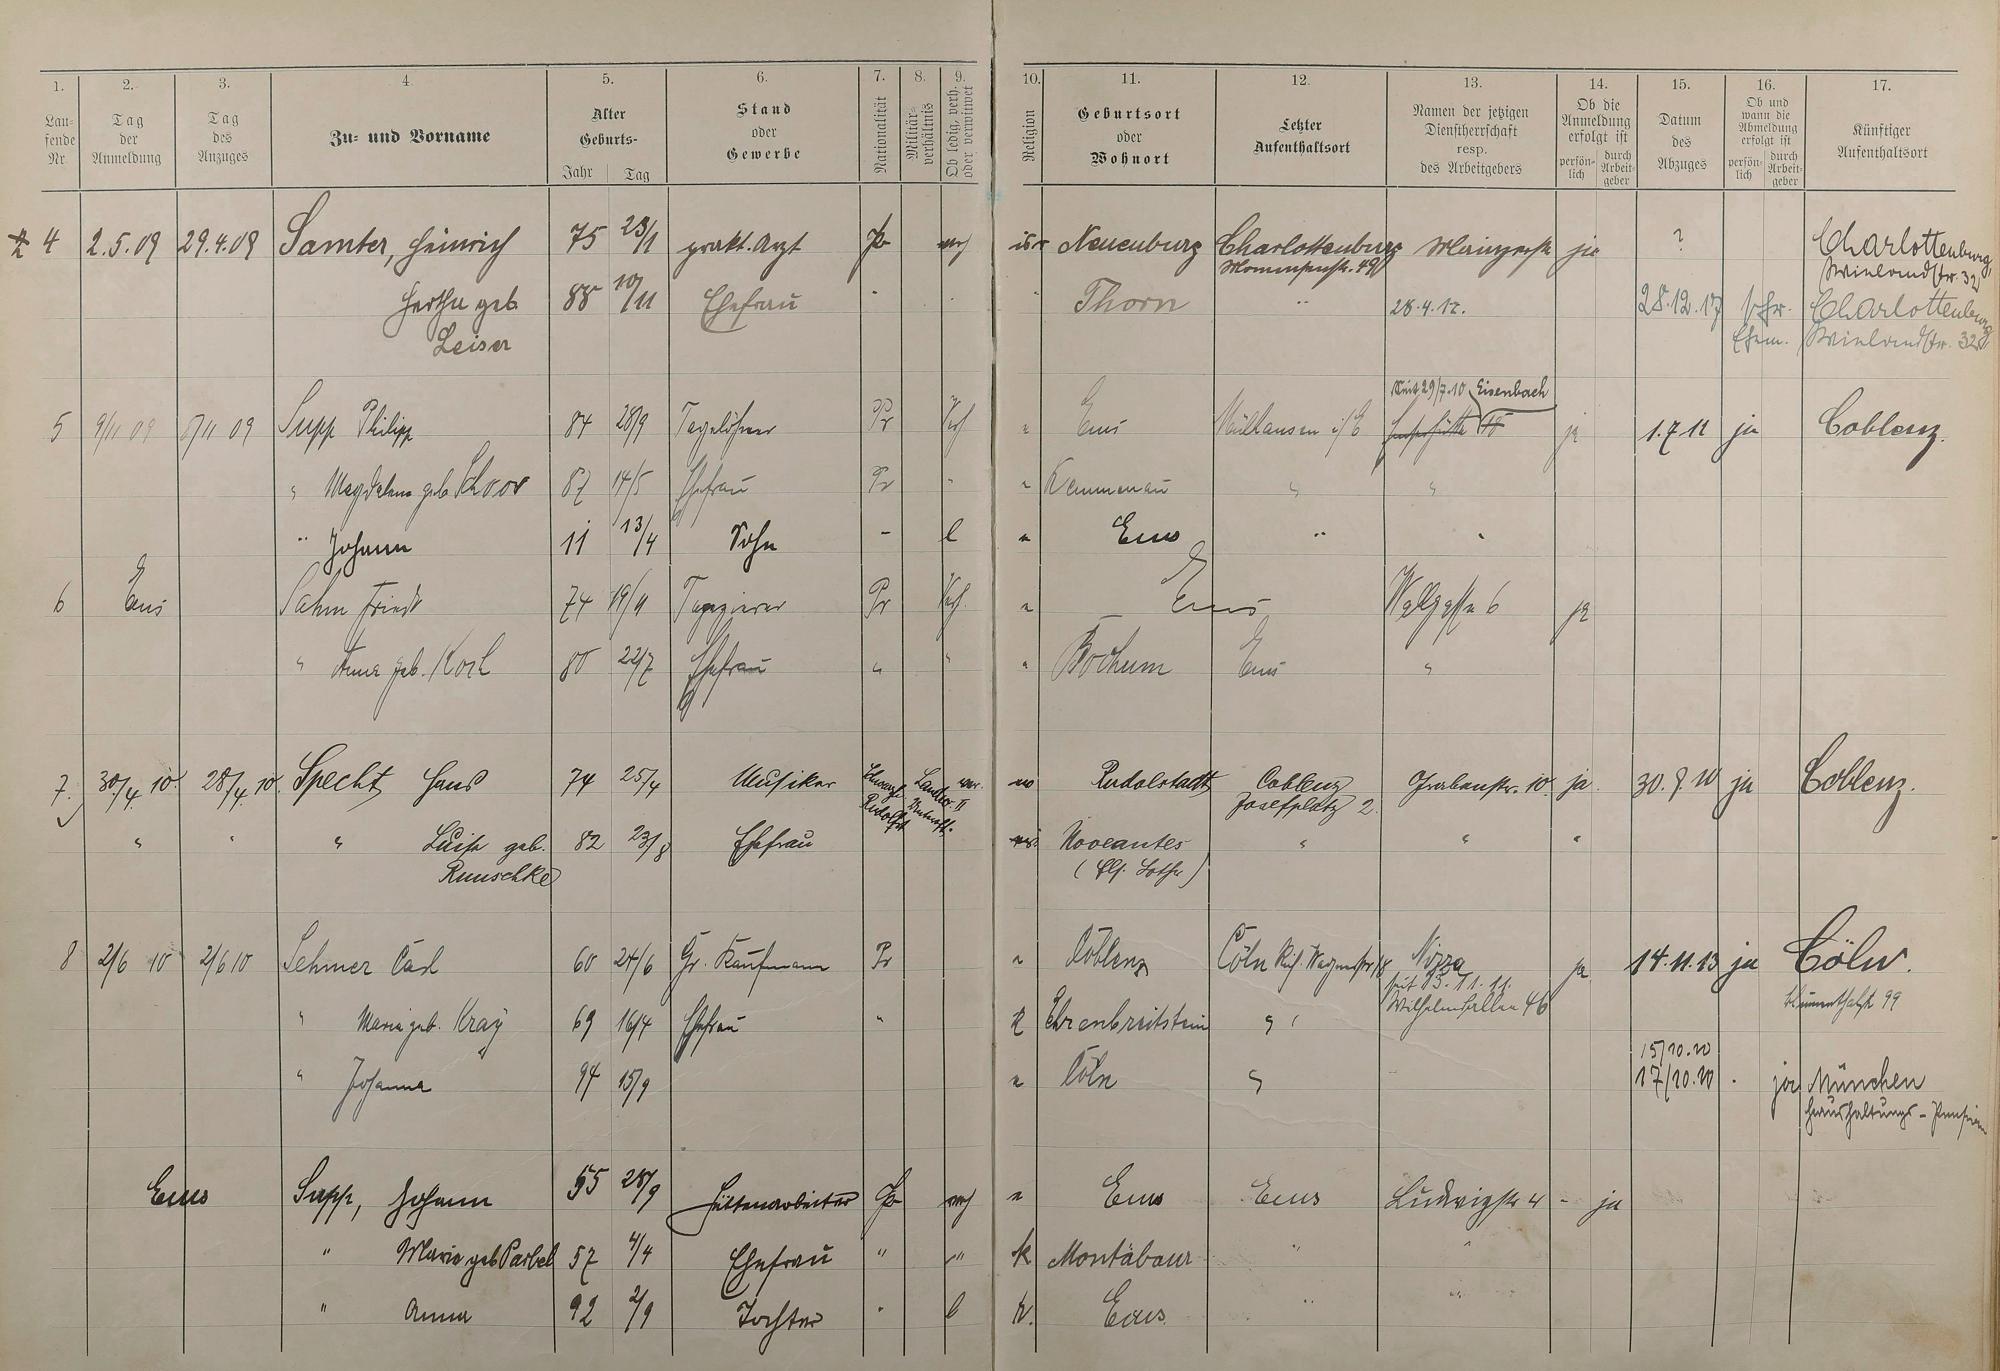 1. 2. 3. 4 5. 6. 7. 8. 9. 10. 11. 12. 13. 14. 15. 16. 17.
Lau-
fende
Nr.
Tag
der
Anmeldung
Tag
des
Anzuges
Zu- und Vorname
Alter
Geburts-
Jahr Tag
Stand
oder
Gewerbe
Nationalität
Militär-
verhältnis
Ob ledig, verh.
oder verwitwet
Religion
Geburtsort
oder
Wohnort
Letzter
Aufenthaltsort
Namen der jetzigen
Dienstherrschaft
resp.
des Arbeitgebers
Ob die
Anmeldung
erfolgt ist
persön-
lich
durch
Arbeit-
geber
Datum
des
Abzuges
Ob und
wann die
Abmeldung
erfolgt ist
persön-
lich
durch
Arbeit-
geber
Künftiger
Aufenthaltsort
4 2.5.09 29.4.09 Samter, Heinrich 75 23/1 prakt. Arzt Pr verh isr Neuenburg Charlottenburg Mainzerstr ja ? Charlottenburg,
Mommsenstr. 49 Wielandstr. 32
Hertha geb. 88 10/11 Ehefrau " Thorn " 28.4.12. 28.12.17 Charlottenburg
Leiser Ehem. Wielandstr. 32
seit 29/7.10 Eisenbach
5 9/11 09 6/11 09 Supp Philipp 84 28/9 Tagelöhner Pr Verh " Ems Mülhausen i/E ja 1.7 11 ja Coblenz.
" Magdalena geb. Schoor 87 14/5 Ehefrau Pr " " Kemmenau " "
" Johann 11 13/4 Sohn - l " Ems " "
6 Ems Sahm Friedr 74 19/11 Tapezierer Pr Verh. " Ems Walgasse 6 ja
" Anna geb. Korl 80 22/7 Ehefrau " " " Bochum Ems "
7. 30/4 10. 28/4 10. Specht, Hans 74 25/4 Musiker Schwarzb. Landw. II ver. Rudolstadt Coblenz Grabenstr. 10. ja 30.9.10 ja Coblenz.
Rudolst Josefplatz 2.
" " " Luise geb. 82 23/8 Ehefrau Noveantes " " "
Runschke (Els. Lothr)
8 2/6 10 2/6 10 Sehmer Carl 60 24/6 Gr. Kaufmann Pr " Coblenz Cöln Rich. Wagnerstr 18 Nizza ja 14.11.13 ja Cöln.
seit 15.11.11.
Wilhelmsallee 46 Blumenthalstr 99
" Maria geb. Kray 69 16/4 Ehefrau " K Ehrenbreitstein "
15/10.10
" Johanna 94 15/9 " Cöln " 17/10.10 ja München
Haushaltungs-Pension
Ems Supp, Johann 55 28/9 Hüttenarbeiter Pr verh " Ems Ems Ludwigstr 4 - ja
" Maria geb Parbel 57 4/4 Ehefrau " " k Montabaur " "
" Anna 92 2/9 Tochter " l k. Ems. " "